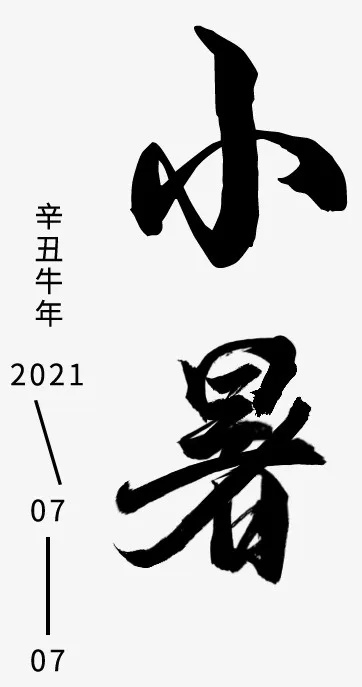 小暑
辛丑牛年
2021
07
07